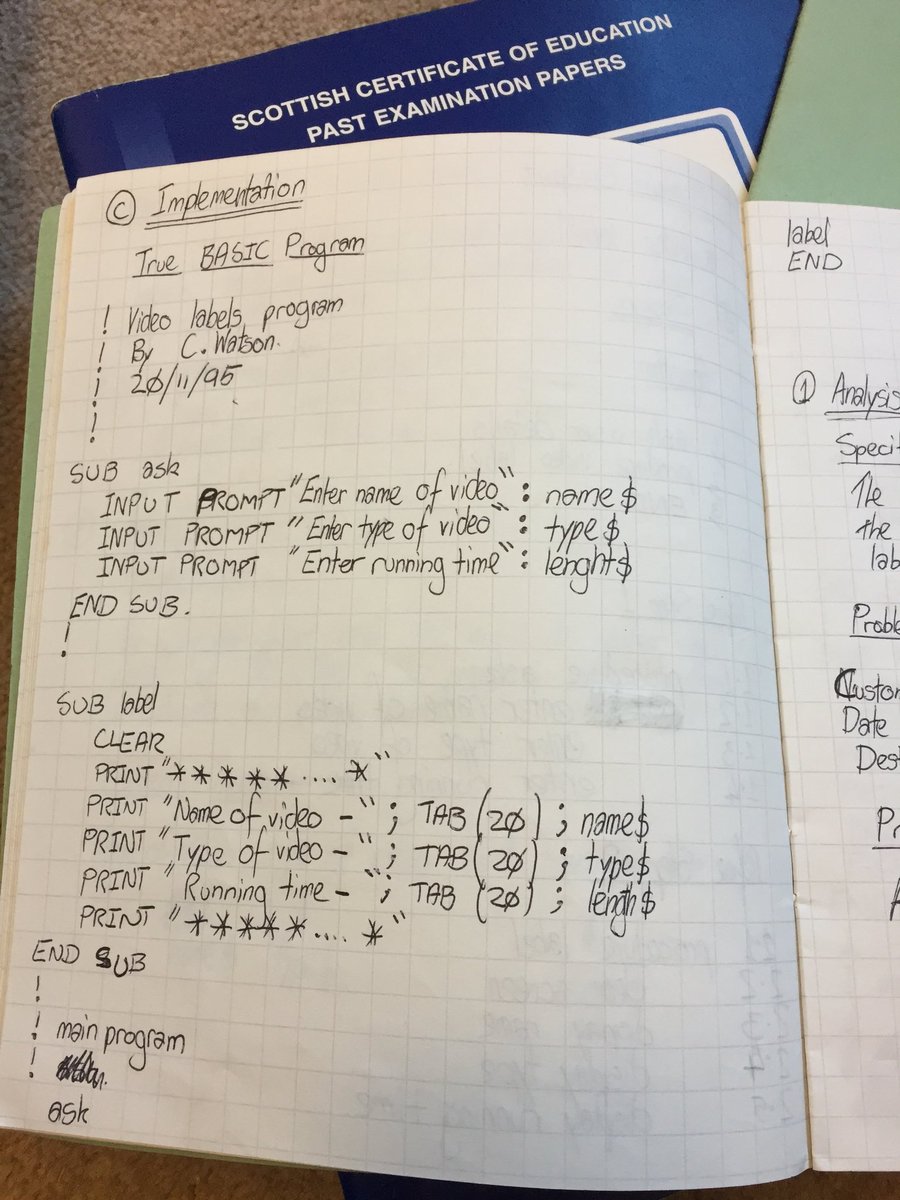 SCOTTISH CERTIFICATE OF EDUCATION
PAST EXAMINATION PAPERS
© Implementation
True BASIC Program
! Video labels program
! By C. Watson.
! 20/11/95
!
!
SUB ask
INPUT PROMPT "Enter name of video" : name$
INPUT PROMPT "Enter type of video" : type$
INPUT PROMPT "Enter running time" : lenght$
END SUB.
!
SUB label
CLEAR
PRINT "***** .... *"
PRINT "Name of video - " ; TAB (20) ; name$
PRINT "Type of video - " ; TAB (20) ; type$
PRINT "Running time - " ; TAB (20) ; length$
PRINT "***** .... *"
END SUB
!
! main program
!
ask
label
END
① Analysis
Specif
The
the
lab
Proble
Custom
Date
Dest
Pr